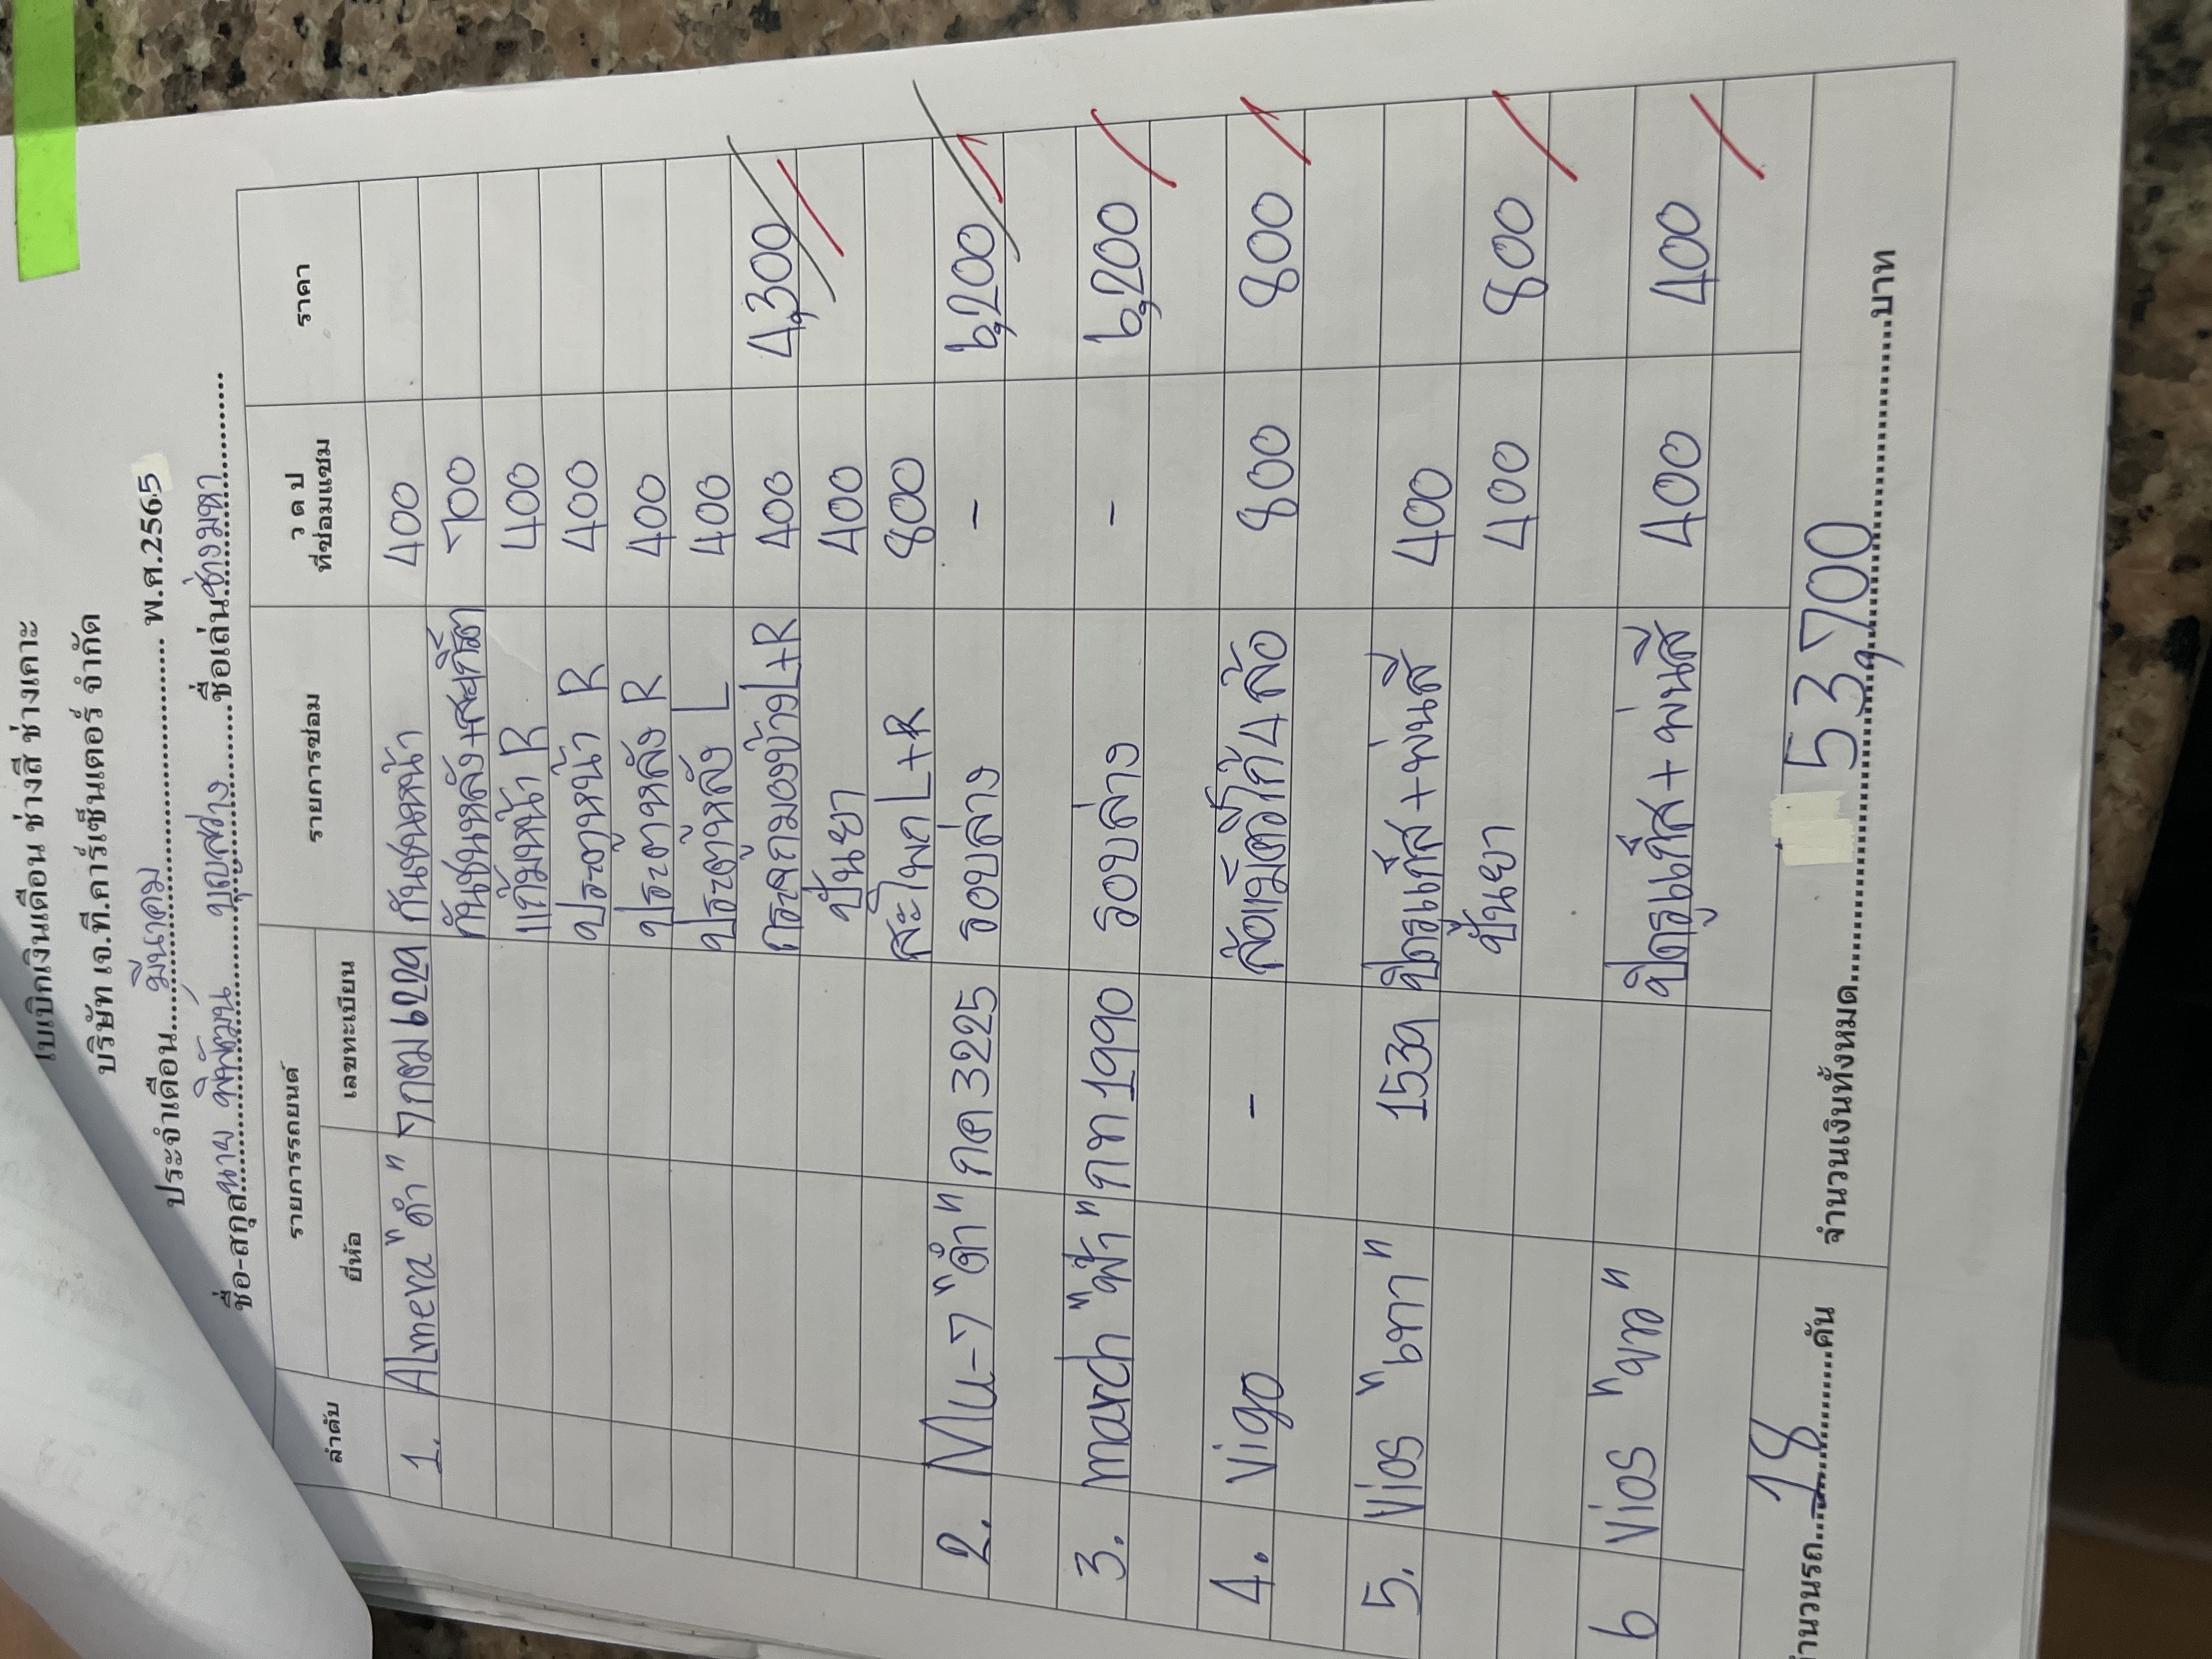 ใบเบิกเงินเดือน ช่างสี ช่างเคาะ
บริษัท เจ.ที.คาร์เซ็นเตอร์ จำกัด
ประจำเดือน....มีนาคม.... พ.ศ.2565
ชื่อ-สกุล นาย พิพัฒน์ บุญสว่าง ชื่อเล่น ช่างมหา
ลำดับ รายการรถยนต์ รายการซ่อม ว ด ป ที่ซ่อมแซม ราคา
ยี่ห้อ เลขทะเบียน
1. Almera "ดำ" 7กฌ6229 กันชนหน้า 400
กันชนหลัง+สเกิ๊ต 700
แก้มหน้า R 400
ประตูหน้า R 400
ประตูหลัง R 400
ประตูหลัง L 400
กระจกมองข้าง L+R 400 4,300
ปั้นยา 400
สะโพก L+R 800
2. Mu-7 "ดำ" กด 3225 รอบล่าง - 6,200
3. march "ฟ้า" กท 1990 รอบล่าง - 6,200
4. Vigo - ล้อแม็ตโก้ 4 ล้อ 800 800
5. Vios "เทา" 1539 ปิดรูแก๊ส+พ่นสี 400
ปั้นยา 400 800
6 Vios "ขาว" ปิดรูแก๊ส+พ่นสี 400 400
จำนวนรถ....18....คัน จำนวนเงินทั้งหมด....53,700....บาท